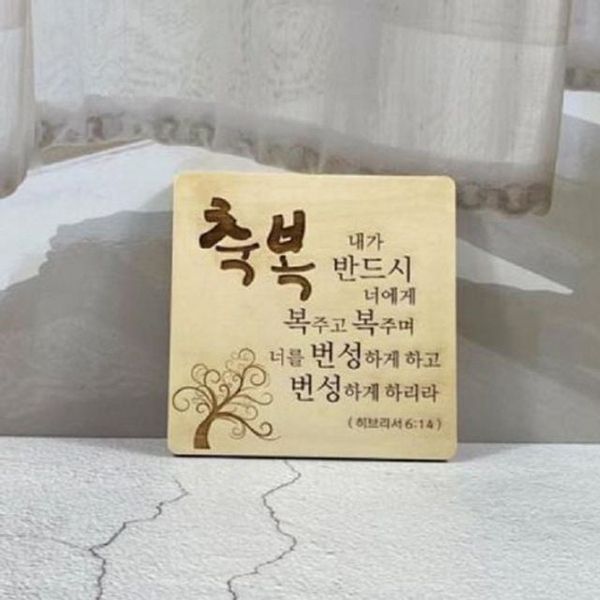 축복
내가
반드시
너에게
복주고 복주며
너를 번성하게 하고
번성하게 하리라
( 히브리서 6:14 )